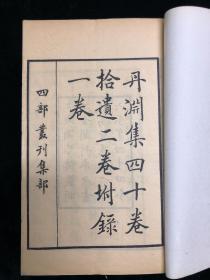 丹淵集四十卷
拾遺二卷坿錄
一卷
四部叢刊集部